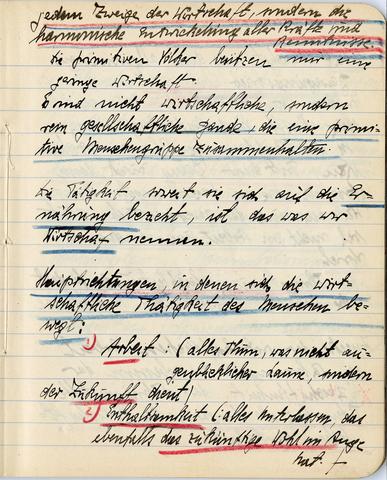 jedem Zweige der Wirtschaft, sondern die
harmonische Entwickelung aller Kräfte und
Bedürfnisse.
Die primitiven Völker besitzen nur eine
geringe Wirtschaft.
Es sind nicht wirtschaftliche, sondern
rein gesellschaftliche Bande, die eine primi-
tive Menschengruppe zusammenhalten.
Die Tätigkeit soweit sie sich auf die Er-
nährung bezieht, ist das was wir
Wirtschaf nennen.
Hauptrichtungen, in denen sich die wirt-
schaftliche Thätigkeit des Menschen be-
wegt:
1) Arbeit: (alles Thun, was nicht au-
genblicklicher Laune, sondern
der Zukunft dient)
2) Enthaltsamkeit (: alles Unterlassen, das
ebenfalls das zukünftige Wohl im Auge
hat.